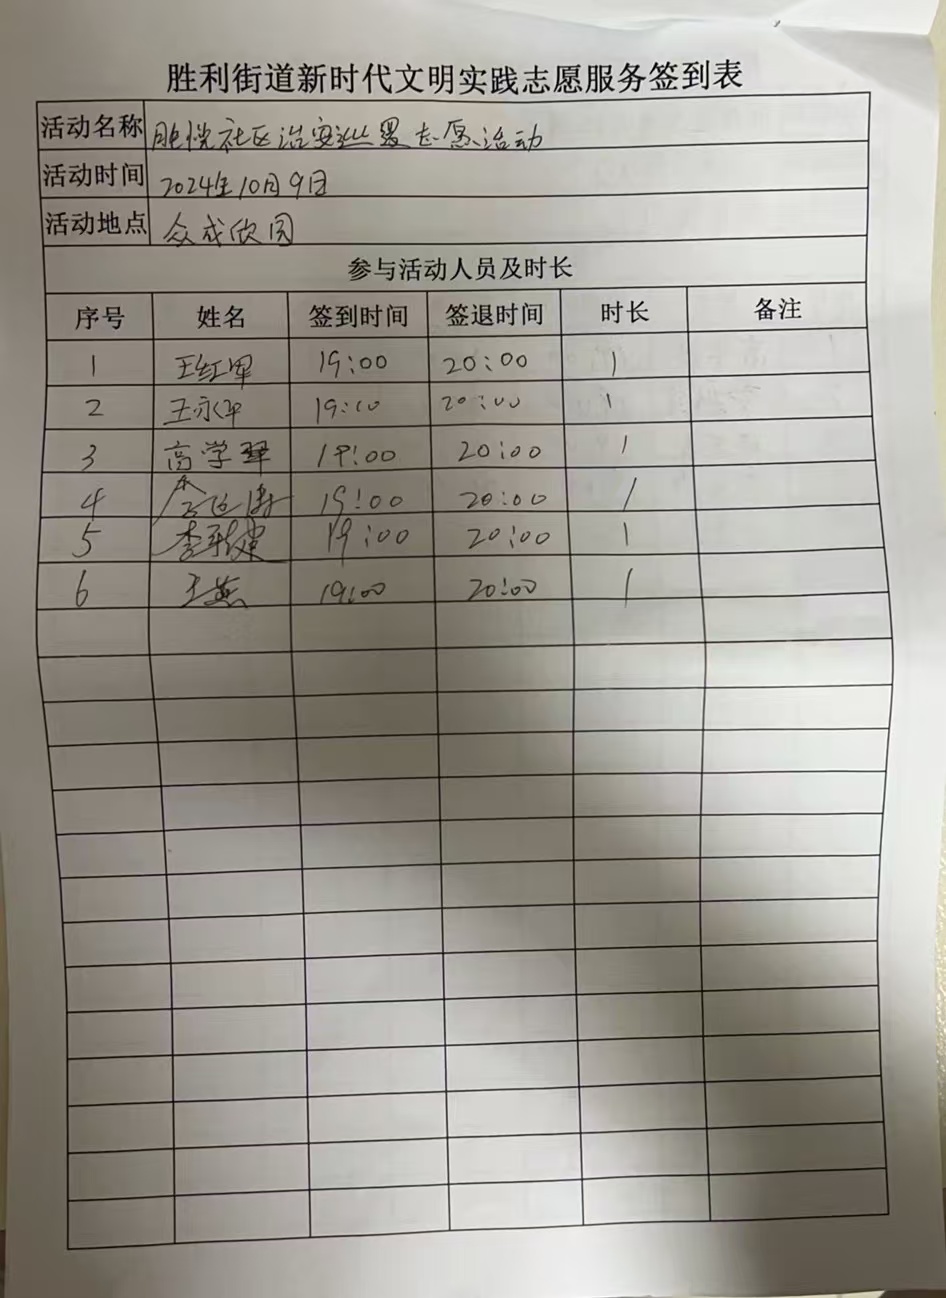 胜利街道新时代文明实践志愿服务签到表
活动名称 胜悦社区治安巡逻志愿活动
活动时间 2024年10月9日
活动地点 众成欣园
参与活动人员及时长
序号 姓名 签到时间 签退时间 时长 备注
1 王红军 19:00 20:00 1
2 王永平 19:00 20:00 1
3 高学翠 19:00 20:00 1
4 19:00 20:00 1
5 李 19:00 20:00 1
6 王燕 19:00 20:00 1